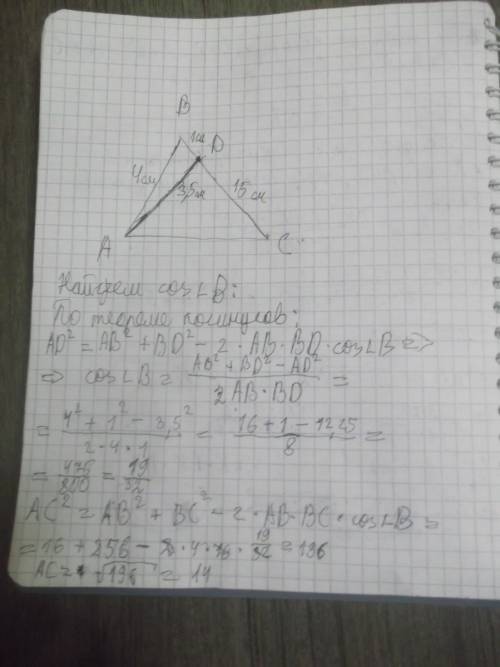 B
1см
D
4см
3,5см
15см
A
C
Найдем cos∠B:
По теореме косинусов:
AD² = AB² + BD² - 2 · AB · BD · cos∠B ⇒
⇒ cos∠B = (AB² + BD² - AD²)/(2AB · BD) =
= (4² + 1² - 3,5²)/(2 · 4 · 1) = (16 + 1 - 12,25)/8 =
= 475/800 = 19/32
AC² = AB² + BC² - 2 · AB · BC · cos∠B =
= 16 + 256 - 2 · 4 · 16 · 19/32 = 196
AC = √196 = 14